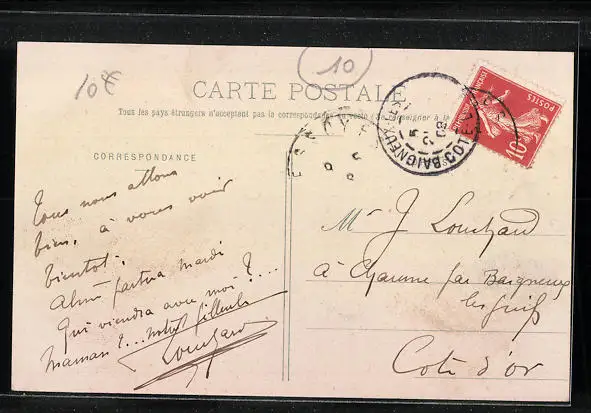 10 €
10
CARTE POSTALE
Tous les pays étrangers n'acceptent pas la correspondance au recto (Se renseigner à la
CORRESPONDANCE
Tous nous allons
bien, à vous voir
bientot.
partira mardi
qui viendra avec moi ?...
maman ?... votre filleule
Louchard
FRANÇAISE
POSTES
10
BAIGNEUX
Mr J Louchard
à par Baigneux
les Juifs
Cote d'or